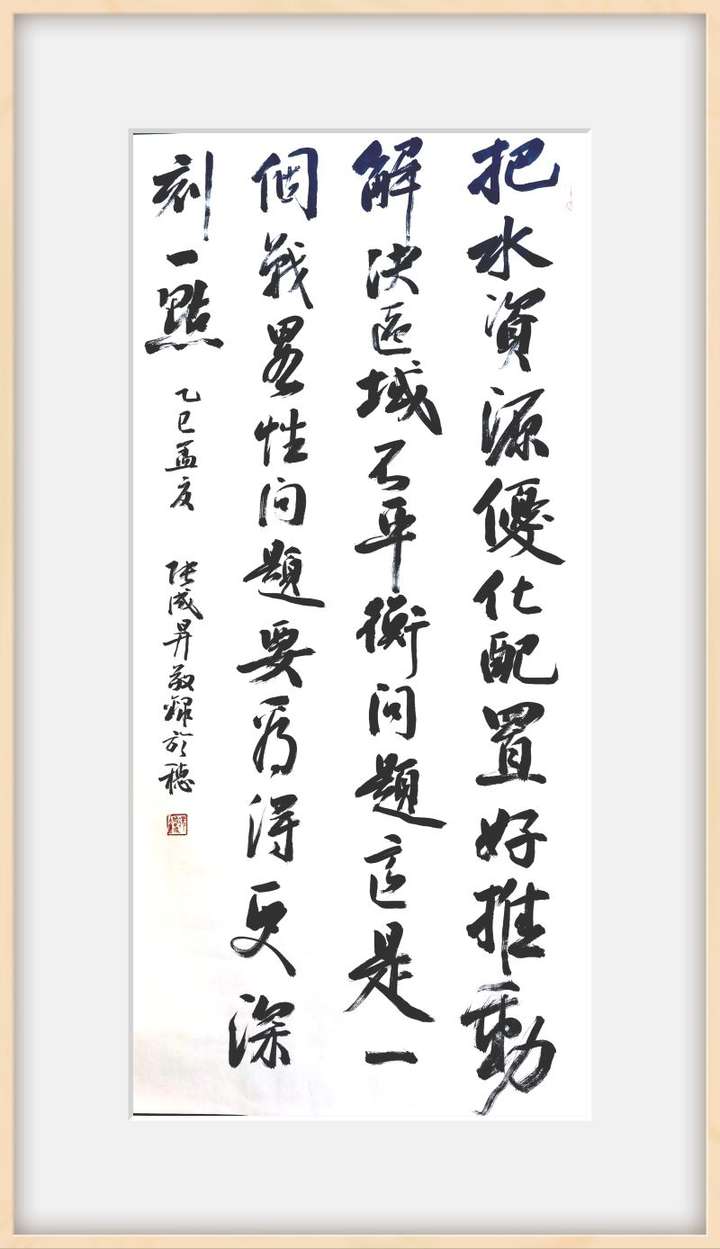 把水資源優化配置好推動
解決區域不平衡問題這是一
個戰畧性問題要看得更深
刻一點
乙巳孟夏
張成昇敬録於穗